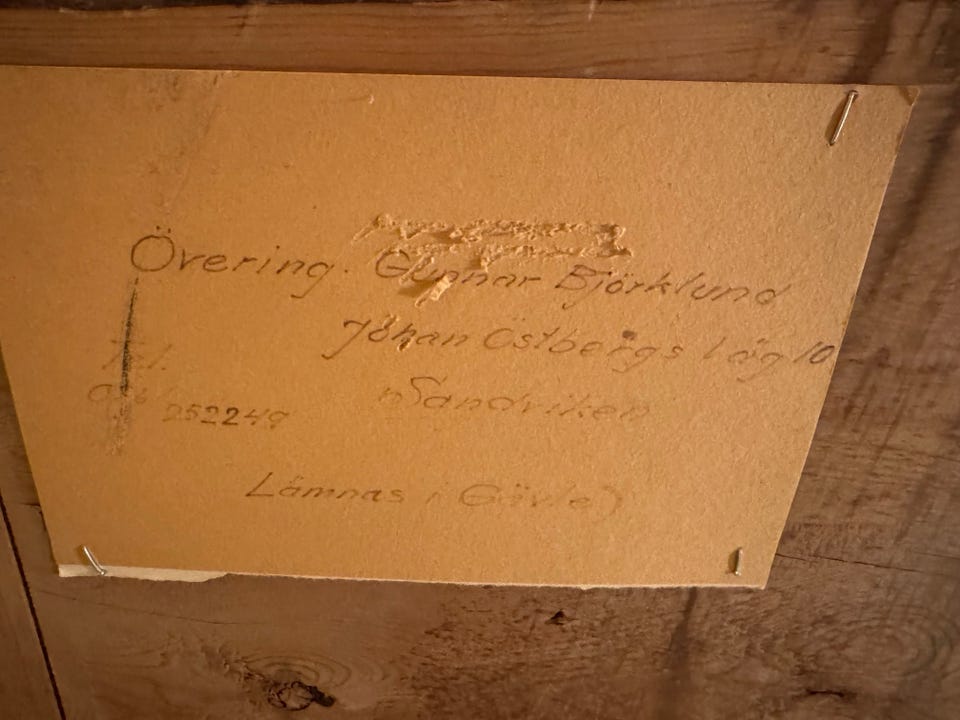 Övering. Gunnar Björklund
Johan Östbergs väg 10
Sandviken
Tel.
252249
Lämnas i Gävle)